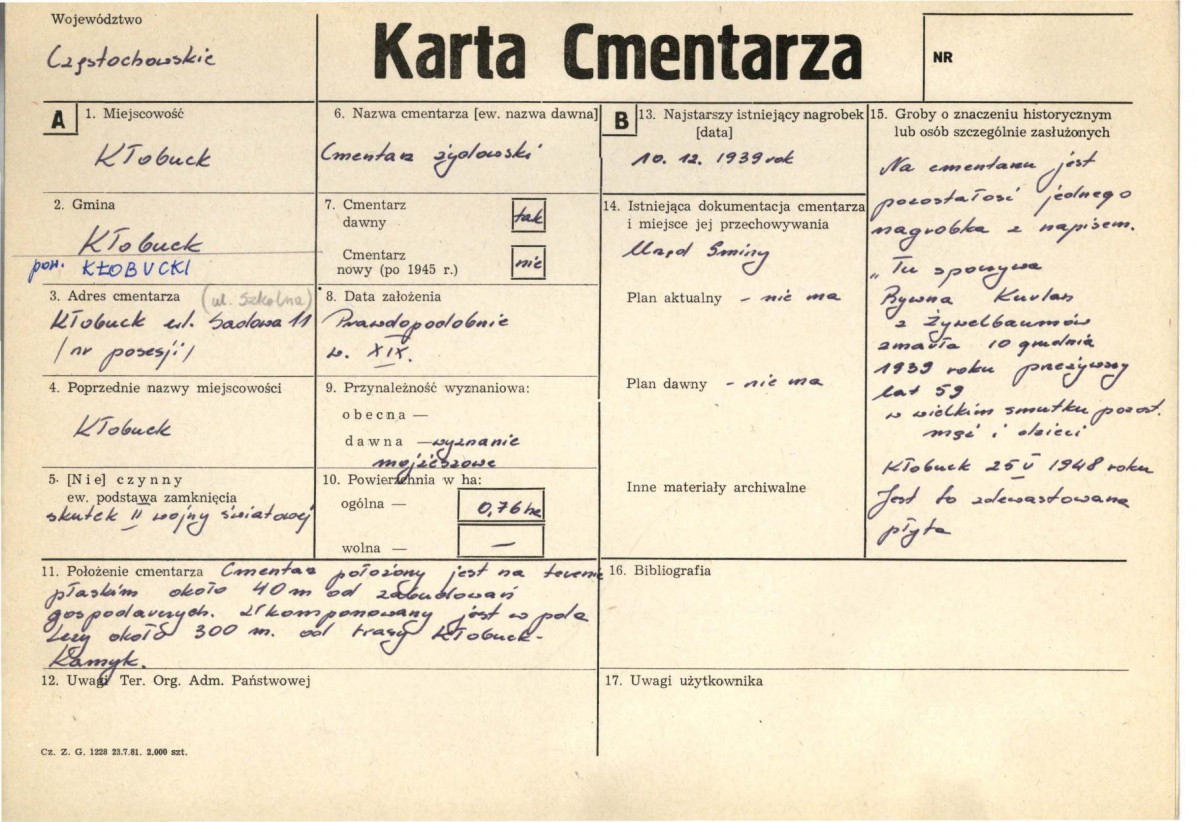 Województwo
Częstochowskie
Karta Cmentarza
NR
A
1. Miejscowość
Kłobuck
2. Gmina
Kłobuck
pow. KŁOBUCKI
3. Adres cmentarza (ul. Szkolna)
Kłobuck ul. Sadowa 11
/nr posesji/
4. Poprzednie nazwy miejscowości
Kłobuck
5. [Nie] czynny
ew. podstawa zamknięcia
skutek II wojny światowej
6. Nazwa cmentarza [ew. nazwa dawna]
Cmentarz żydowski
7. Cmentarz
dawny
tak
Cmentarz
nowy (po 1945 r.)
nie
8. Data założenia
Prawdopodobnie
w. XIX.
9. Przynależność wyznaniowa:
obecna —
dawna — wyznanie
mojżeszowe
10. Powierzchnia w ha:
ogólna —
0,76 ha
wolna —
—
11. Położenie cmentarza Cmentarz położony jest na terenie
płaskim około 40 m od zabudowań
gospodarczych. Wkomponowany jest w pola
Leży około 300 m. od trasy Kłobuck-
Kamyk.
12. Uwagi Ter. Org. Adm. Państwowej
Cz. Z. G. 1228 23.7.81. 2.000 szt.
B
13. Najstarszy istniejący nagrobek
[data]
10. 12. 1939 rok
14. Istniejąca dokumentacja cmentarza
i miejsce jej przechowywania
Urząd Gminy
Plan aktualny - nie ma
Plan dawny - nie ma
Inne materiały archiwalne
15. Groby o znaczeniu historycznym
lub osób szczególnie zasłużonych
Na cmentarzu jest
pozostałość jednego
nagrobka z napisem.
„Tu spoczywa
Rywna Kurlan
z Żywelbaumów
zmarła 10 grudnia
1939 roku przeżywszy
lat 59
w wielkim smutku pozost.
mąż i dzieci
Kłobuck 25 V 1948 roku
Jest to zdewastowana
płyta
16. Bibliografia
17. Uwagi użytkownika